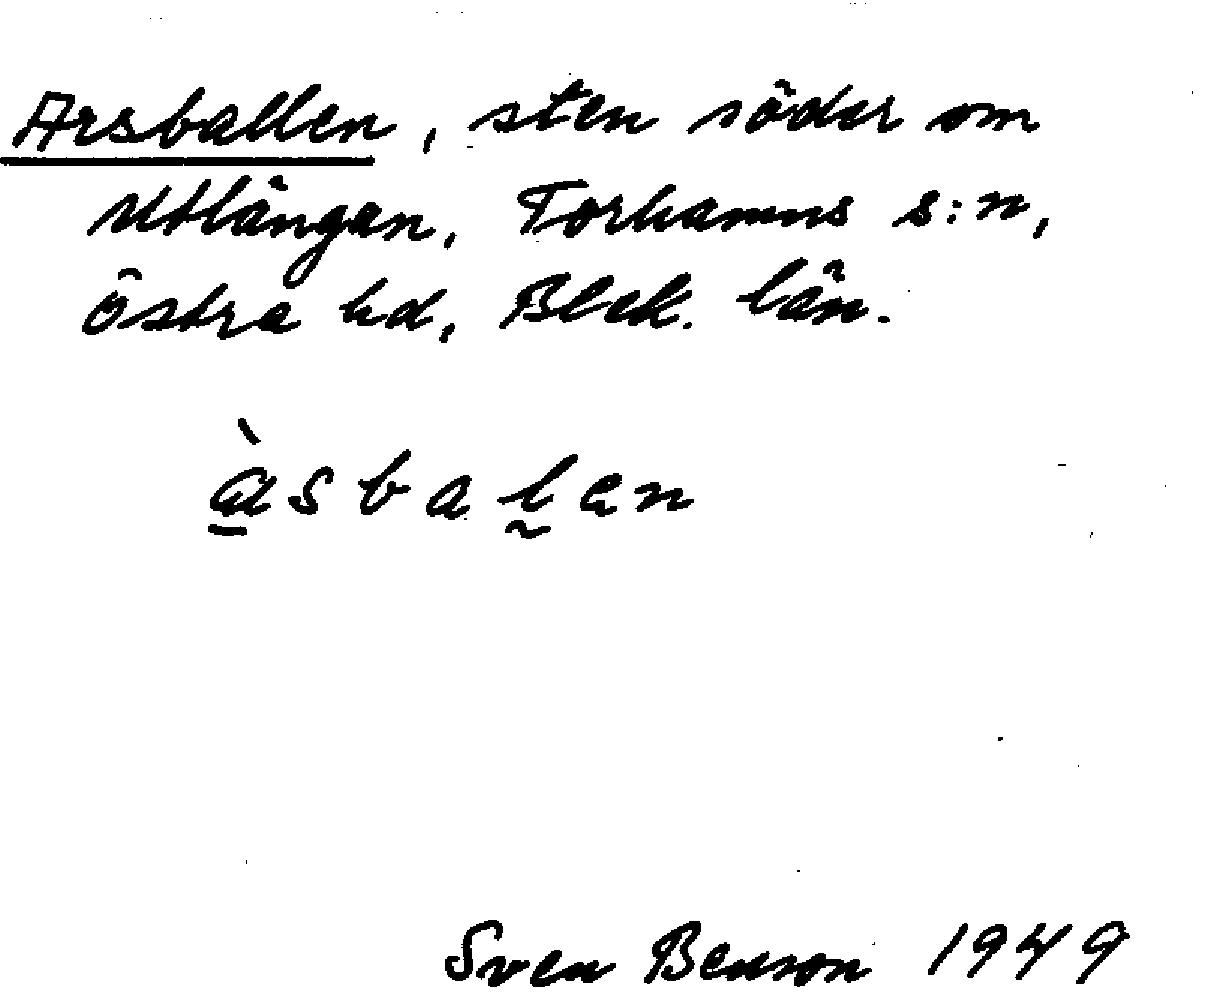 Arsballen, sten söder om
Utlängan, Torhamns s:n,
Östra hd, Blek. län.
àsbalen
Sven Benson 1949